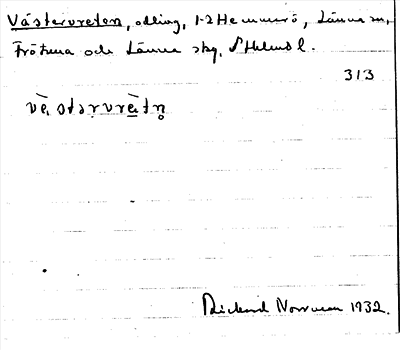 Västervreten, odling, 1-2 Hemmarö, Länna sn,
Frötuna och Länna skg, S Hchmd l.
313
vè̀stərvrètn̥
Rickard Norrman 1932.